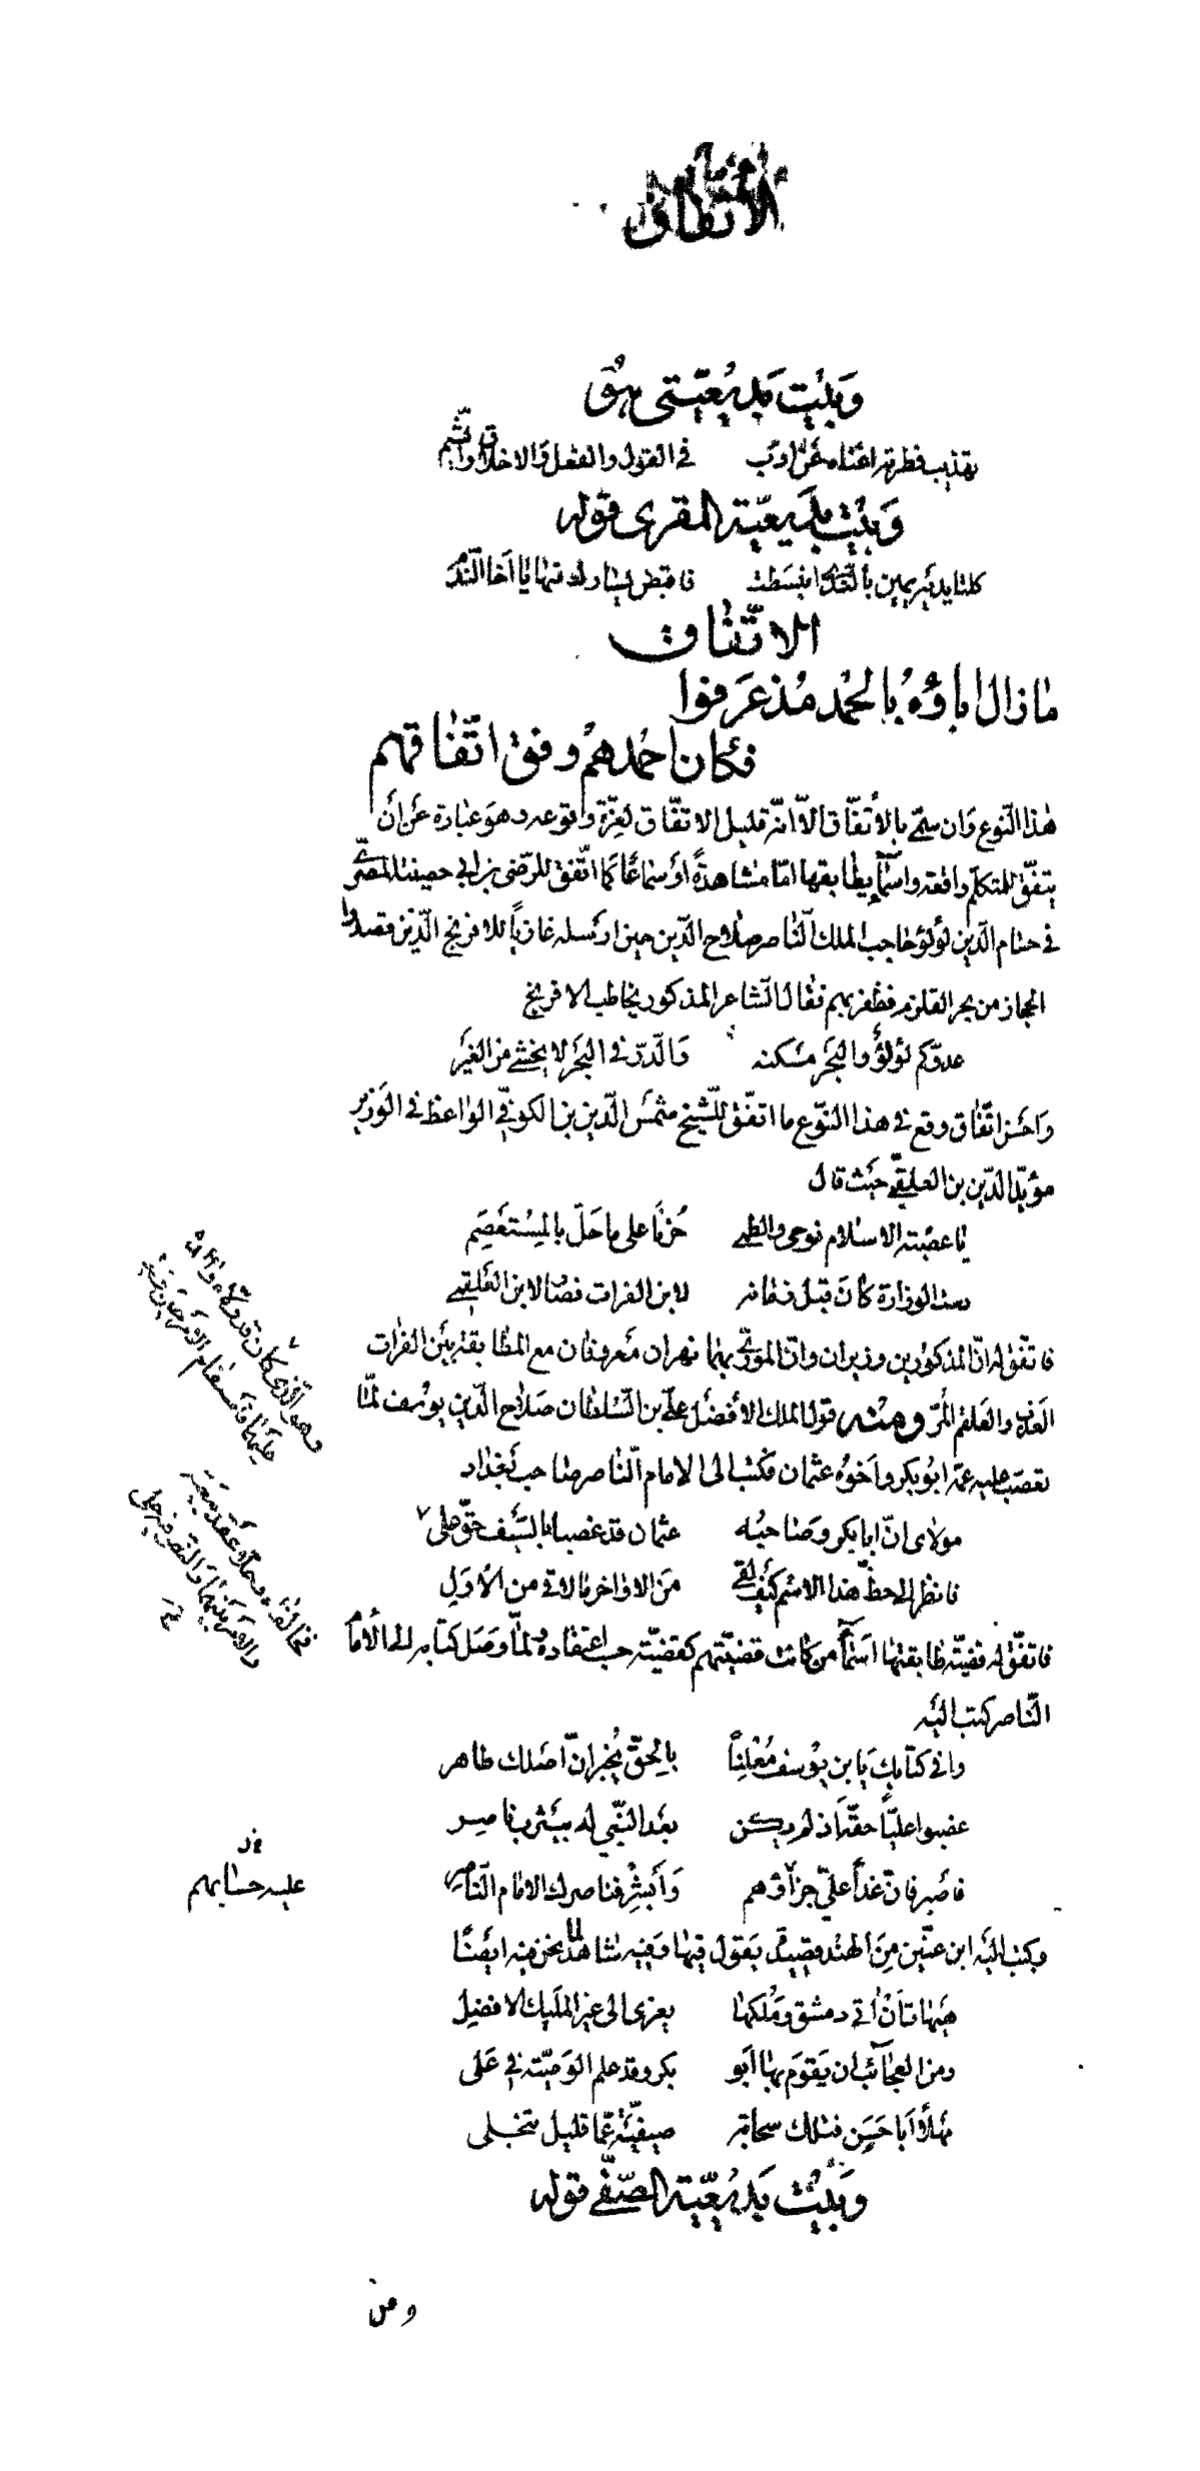 الاتفاق
وبيت بديعيتي هو
تهذيب فطرته اغناه عن ادب في القول والفعل والاخلاق والشيم
وبيت بديعية المقري قوله
كلتا يديه يمين بالندا انبسطت فاقبض يسارك فيها يا اخا الندم
الاتّفاق
مازال اباؤه بالحمد مذ عرفوا
فكان احمدهم وفق اتّفاقهم
هذا النوع وان سمّي بالاتفاق الّا انّه قليل الاتفاق لعزّة وقوعه وهو عبارة عن أن
يتفق للمتكلم واقعة واسماء يطابقها امّا مشاهدةً او سماعًا كما اتّفق للرضى بن ابي حصينة المصري
في حسام الدين لؤلؤ حاجب الملك الناصر صلاح الدين حين ارسله غازيًا للافرنج الذين قصدوا
الحجاز من بحر القلزم فظفر بهم فقال الشاعر المذكور يخاطب الافرنج
عدوّكم لؤلؤ والبحر مسكنه والدّر في البحر لا يخشى من الغير
واحسن اتّفاق وقع في هذا النّوع ما اتفق للشيخ شمس الدين بن الكوفي الواعظ في الوزير
مؤيد الدين بن العلقمي حيث قال
يا عصبة الاسلام نوحي والطمي حزنًا على ما حلّ بالمستعصم
دست الوزارة كان قبل زمانه لابن الفرات فصار لابن العلقمي
فاتفق له انّ المذكورين وزيران وانّ المورّى بهما نهران معروفان مع المطابقة بين الفرات
العذب والعلقم المرّ ومنه قول الملك الأفضل علي بن السلطان صلاح الدين يوسف لمّا
تعصّب عليه عمّه ابو بكر واخوه عثمان فكتب الى الامام الناصر صاحب بغداد
مولاى انّ ابا بكر وصاحبه عثمان قد غصبا بالسيف حقّ علي
فانظر الى حظّ هذا الاسم كيف لقي من الاواخر ما لاقى من الأول
وهو الذي كان قد ولاه
عليهما فاستقام الامر حين
فخالفاه وحلّا عقد بيعته
والامر بينهما والنص فيه جلي
فاتفق له قضيّة طابقتها اسماء من كانت قضيّتهم كقضيّته حسب اعتقاده ولمّا وصل كتابه الى الأمام
الناصر كتب اليه
وافى كتابك يا بن يوسف معلنًا بالحقّ يخبر انّ اصلك طاهر
غصبوا عليًّا حقّه اذ لم يكن بعد النبّي له بيثرب ناصر
فاصبر فانّ غدًا عليّ جزاؤهم وأبشر فناصرك الامام النّاصر
عليه حسابهم
وكتب اليه ابن عنين من الهند قصيدة يقول فيها وفيه شاهد لما نحن فيه ايضًا
هيهات أن آتي دمشق وملكها يعزى الى غير المليك الافضل
ومن العجائب ان يقوم بها ابو بكر وقد علم الوصيّة في علي
مهلًا ابا حسن فتلك سحابة صيفيّة عمّا قليل تنجلى
وبيت بديعية الصّفي قوله
ومن